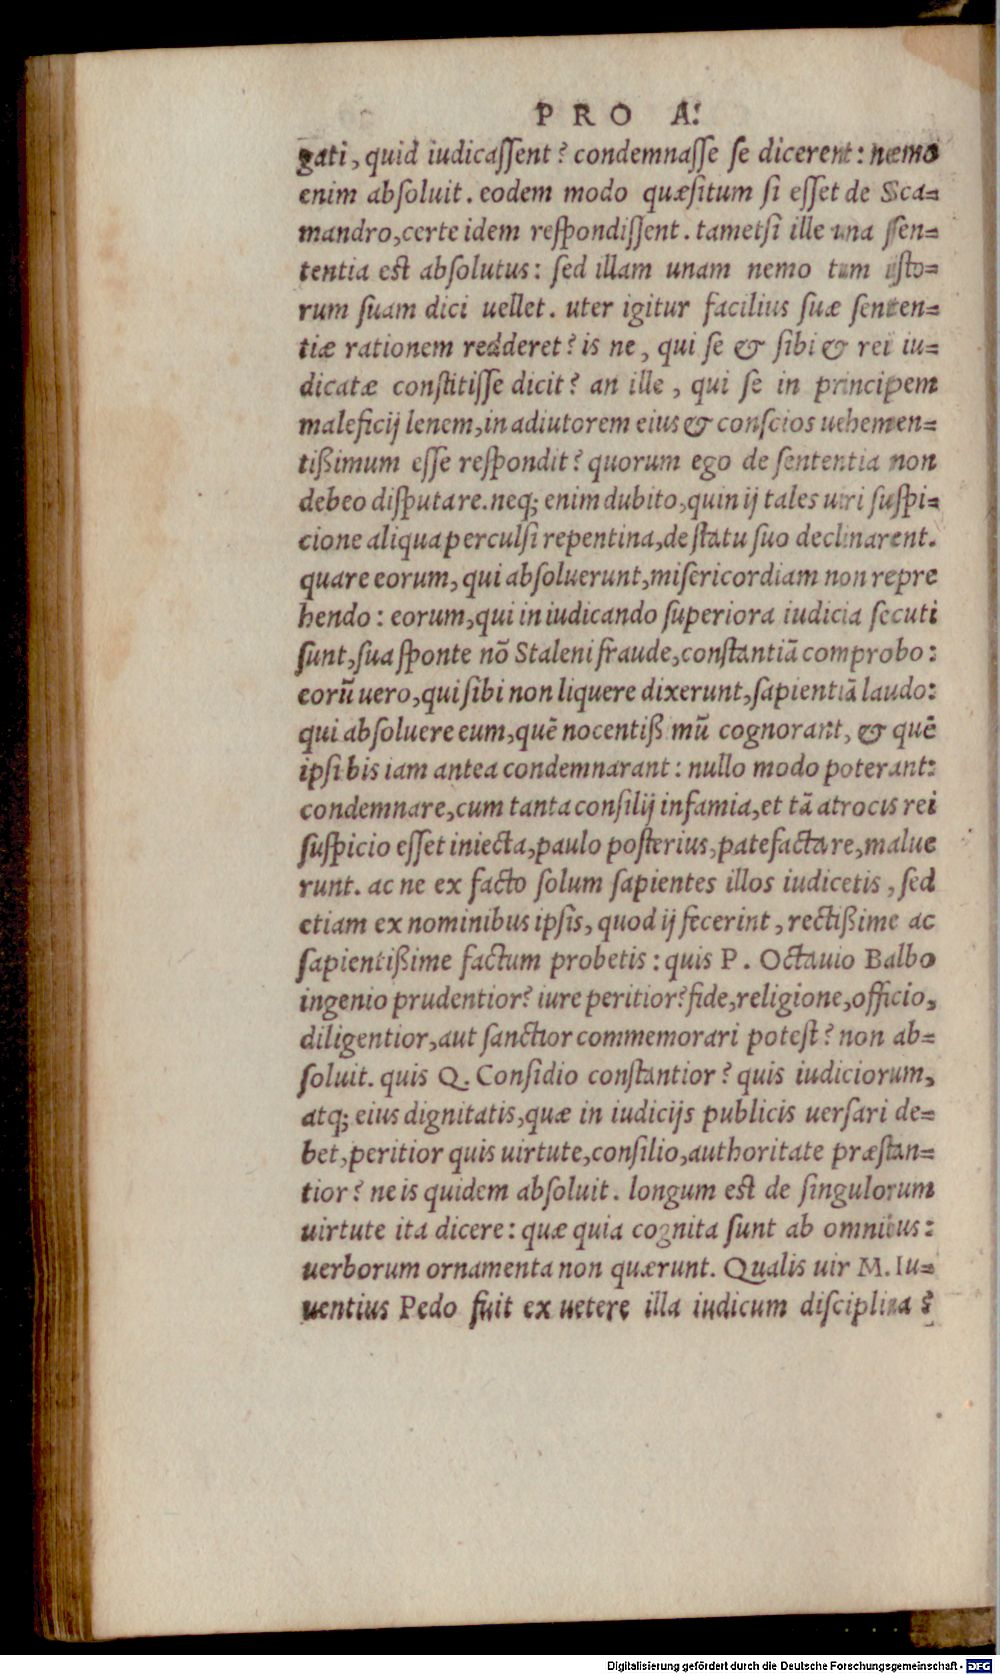 PRO A.
gati, quid iudicaſſent? condemnaſſe ſe dicerent: nemo
enim abſoluit. eodem modo quæſitum ſi eſſet de Sca=
mandro, certe idem reſpondiſſent. tametſi ille una ſen=
tentia eſt abſolutus: ſed illam unam nemo tum iſto=
rum ſuam dici uellet. uter igitur facilius ſuæ ſenten=
tiæ rationem redderet? is ne, qui ſe & ſibi & rei iu=
dicatæ conſtitiſſe dicit? an ille, qui ſe in principem
maleficij lenem, in adiutorem eius & conſcios uehemen=
tißimum eſſe reſpondit? quorum ego de ſententia non
debeo diſputare. neq; enim dubito, quin ij tales uiri ſuſpi=
cione aliqua perculſi repentina, de ſtatu ſuo declinarent.
quare eorum, qui abſoluerunt, miſericordiam non repre
hendo: eorum, qui in iudicando ſuperiora iudicia ſecuti
ſunt, ſua ſponte nō Staleni fraude, conſtantiā comprobo:
eorū uero, qui ſibi non liquere dixerunt, ſapientiā laudo:
qui abſoluere eum, quē nocentiß mū cognorant, & quē
ipſi bis iam antea condemnarant: nullo modo poterant:
condemnare, cum tanta conſilij infamia, et tā atrocis rei
ſuſpicio eſſet iniecta, paulo poſterius, patefacta re, malue
runt. ac ne ex facto ſolum ſapientes illos iudicetis, ſed
etiam ex nominibus ipſis, quod ij fecerint, rectißime ac
ſapientißime factum probetis: quis P. Octauio Balbo
ingenio prudentior? iure peritior? fide, religione, officio,
diligentior, aut ſanctior commemorari poteſt? non ab=
ſoluit. quis Q. Conſidio conſtantior? quis iudiciorum,
atq; eius dignitatis, quæ in iudicijs publicis uerſari de=
bet, peritior quis uirtute, conſilio, authoritate præſtan=
tior? ne is quidem abſoluit. longum eſt de ſingulorum
uirtute ita dicere: quæ quia cognita ſunt ab omnibus:
uerborum ornamenta non quærunt. Qualis uir M. Iu=
uentius Pedo fuit ex uetere illa iudicum diſciplina?
Digitalisierung gefördert durch die Deutsche Forschungsgemeinschaft - DFG